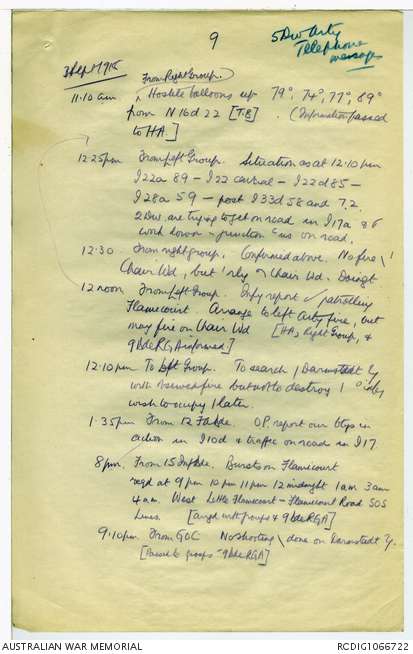 9
5 Div Arty
Telephone
messages
3 Sept 1918
From Right Group.
11.10 am Hostile balloons up 79°, 74°, 77°, 89°
from N16d 22 [T.B.] (Information passed
to HA]
12.25pm From Left Group. Situation as at 12.10 pm
I22a 89 - I22 central - I22d 85 -
I28a 59 - post I33d 58 and 7.2.
2 Div. are trying to get on road in I17a &
work down - junction us on road.
12.30 From right group. Confirmed above. No fire
Chair Wd, but Chair Wd.
12 noon From Left Group. Infy report patrolling
Flamicourt. Arrange to left Arty fire, but
may fire on Chair Wd [HA, Right Group, &
9 Bde RGA informed.]
12.10pm To Left Group. To search Darmstadt
with fire but not to destroy
wish to occupy later.
1.35pm From 12 Fd Bde. O.P. report our btys in
action in I10d & traffic on road in I17
8pm. From 15 Inf Bde. Bursts on Flamicourt
reqd at 9 pm 10 pm 11 pm 12 midnight 1 am 3 am
4 am. West Little Flamicourt - Flamicourt Road SOS
Lines. [arrgd with groups & 9 Bde RGA]
9.10pm From GOC No shooting done on Darmstadt
[Passed to groups - 9 Bde RGA]
AUSTRALIAN WAR MEMORIAL
RCDIG1066722